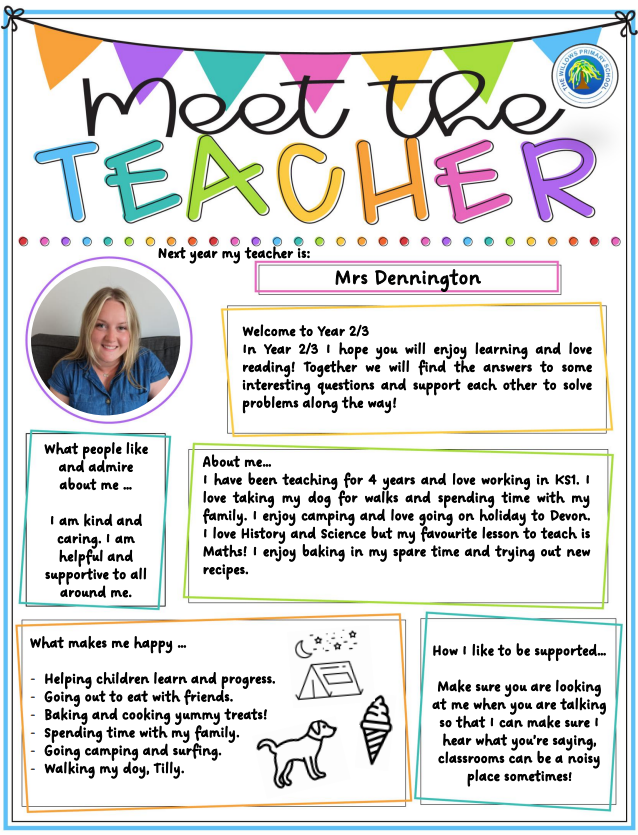 THE WILLOWS PRIMARY SCHOOL
Meet the
TEACHER
Next year my teacher is:
Mrs Dennington
Welcome to Year 2/3
In Year 2/3 I hope you will enjoy learning and love
reading! Together we will find the answers to some
interesting questions and support each other to solve
problems along the way!
What people like
and admire
about me ...
I am kind and
caring. I am
helpful and
supportive to all
around me.
About me...
I have been teaching for 4 years and love working in KS1. I
love taking my dog for walks and spending time with my
family. I enjoy camping and love going on holiday to Devon.
I love History and Science but my favourite lesson to teach is
Maths! I enjoy baking in my spare time and trying out new
recipes.
What makes me happy ...
- Helping children learn and progress.
- Going out to eat with friends.
- Baking and cooking yummy treats!
- Spending time with my family.
- Going camping and surfing.
- Walking my doy, Tilly.
How I like to be supported...
Make sure you are looking
at me when you are talking
so that I can make sure I
hear what you're saying,
classrooms can be a noisy
place sometimes!